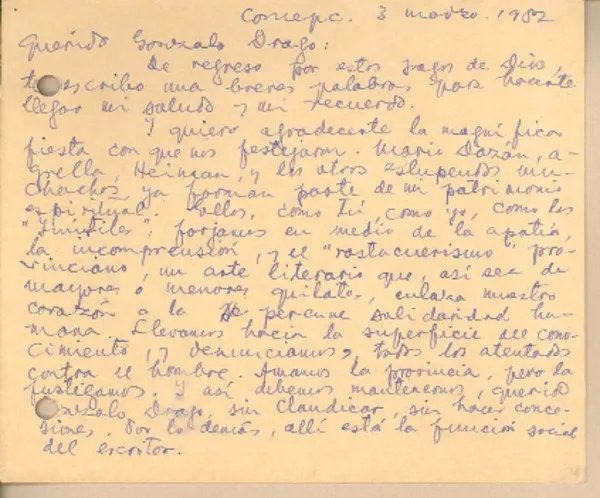 Concepc. 3 marzo. 1982
Querido Gonzalo Drago:
De regreso por estos pagos de Dios,
te escribo una breves palabras para hacerte
llegar mi saludo y mi recuerdo.
Y quiero agradecerte la magnífica
fiesta con que nos festejaron. Mario Dazán, a-
grella, Herman, y los otros estupendos mu-
chachos, ya forman parte de mi patrimonio
espiritual. Ellos, como tú, como yo, como los
"Inútiles", forjamos en medio de la apatía,
la incomprensión, y el "rastacuerismo" pro-
vinciano, un arte literario que, así sea de
mayores o menores quilates, enlaza nuestro
corazón a la perenne solidaridad hu-
mana. Elevamos hacia la superficie del cono-
cimiento, y denunciamos, todos los atentados
contra el hombre. Amamos la provincia, pero la
fustigamos. Y así debemos mantenernos, querido
Gonzalo Drago, sin claudicar, sin hacer conce-
siones. Por lo demás, allí está la función social
del escritor.